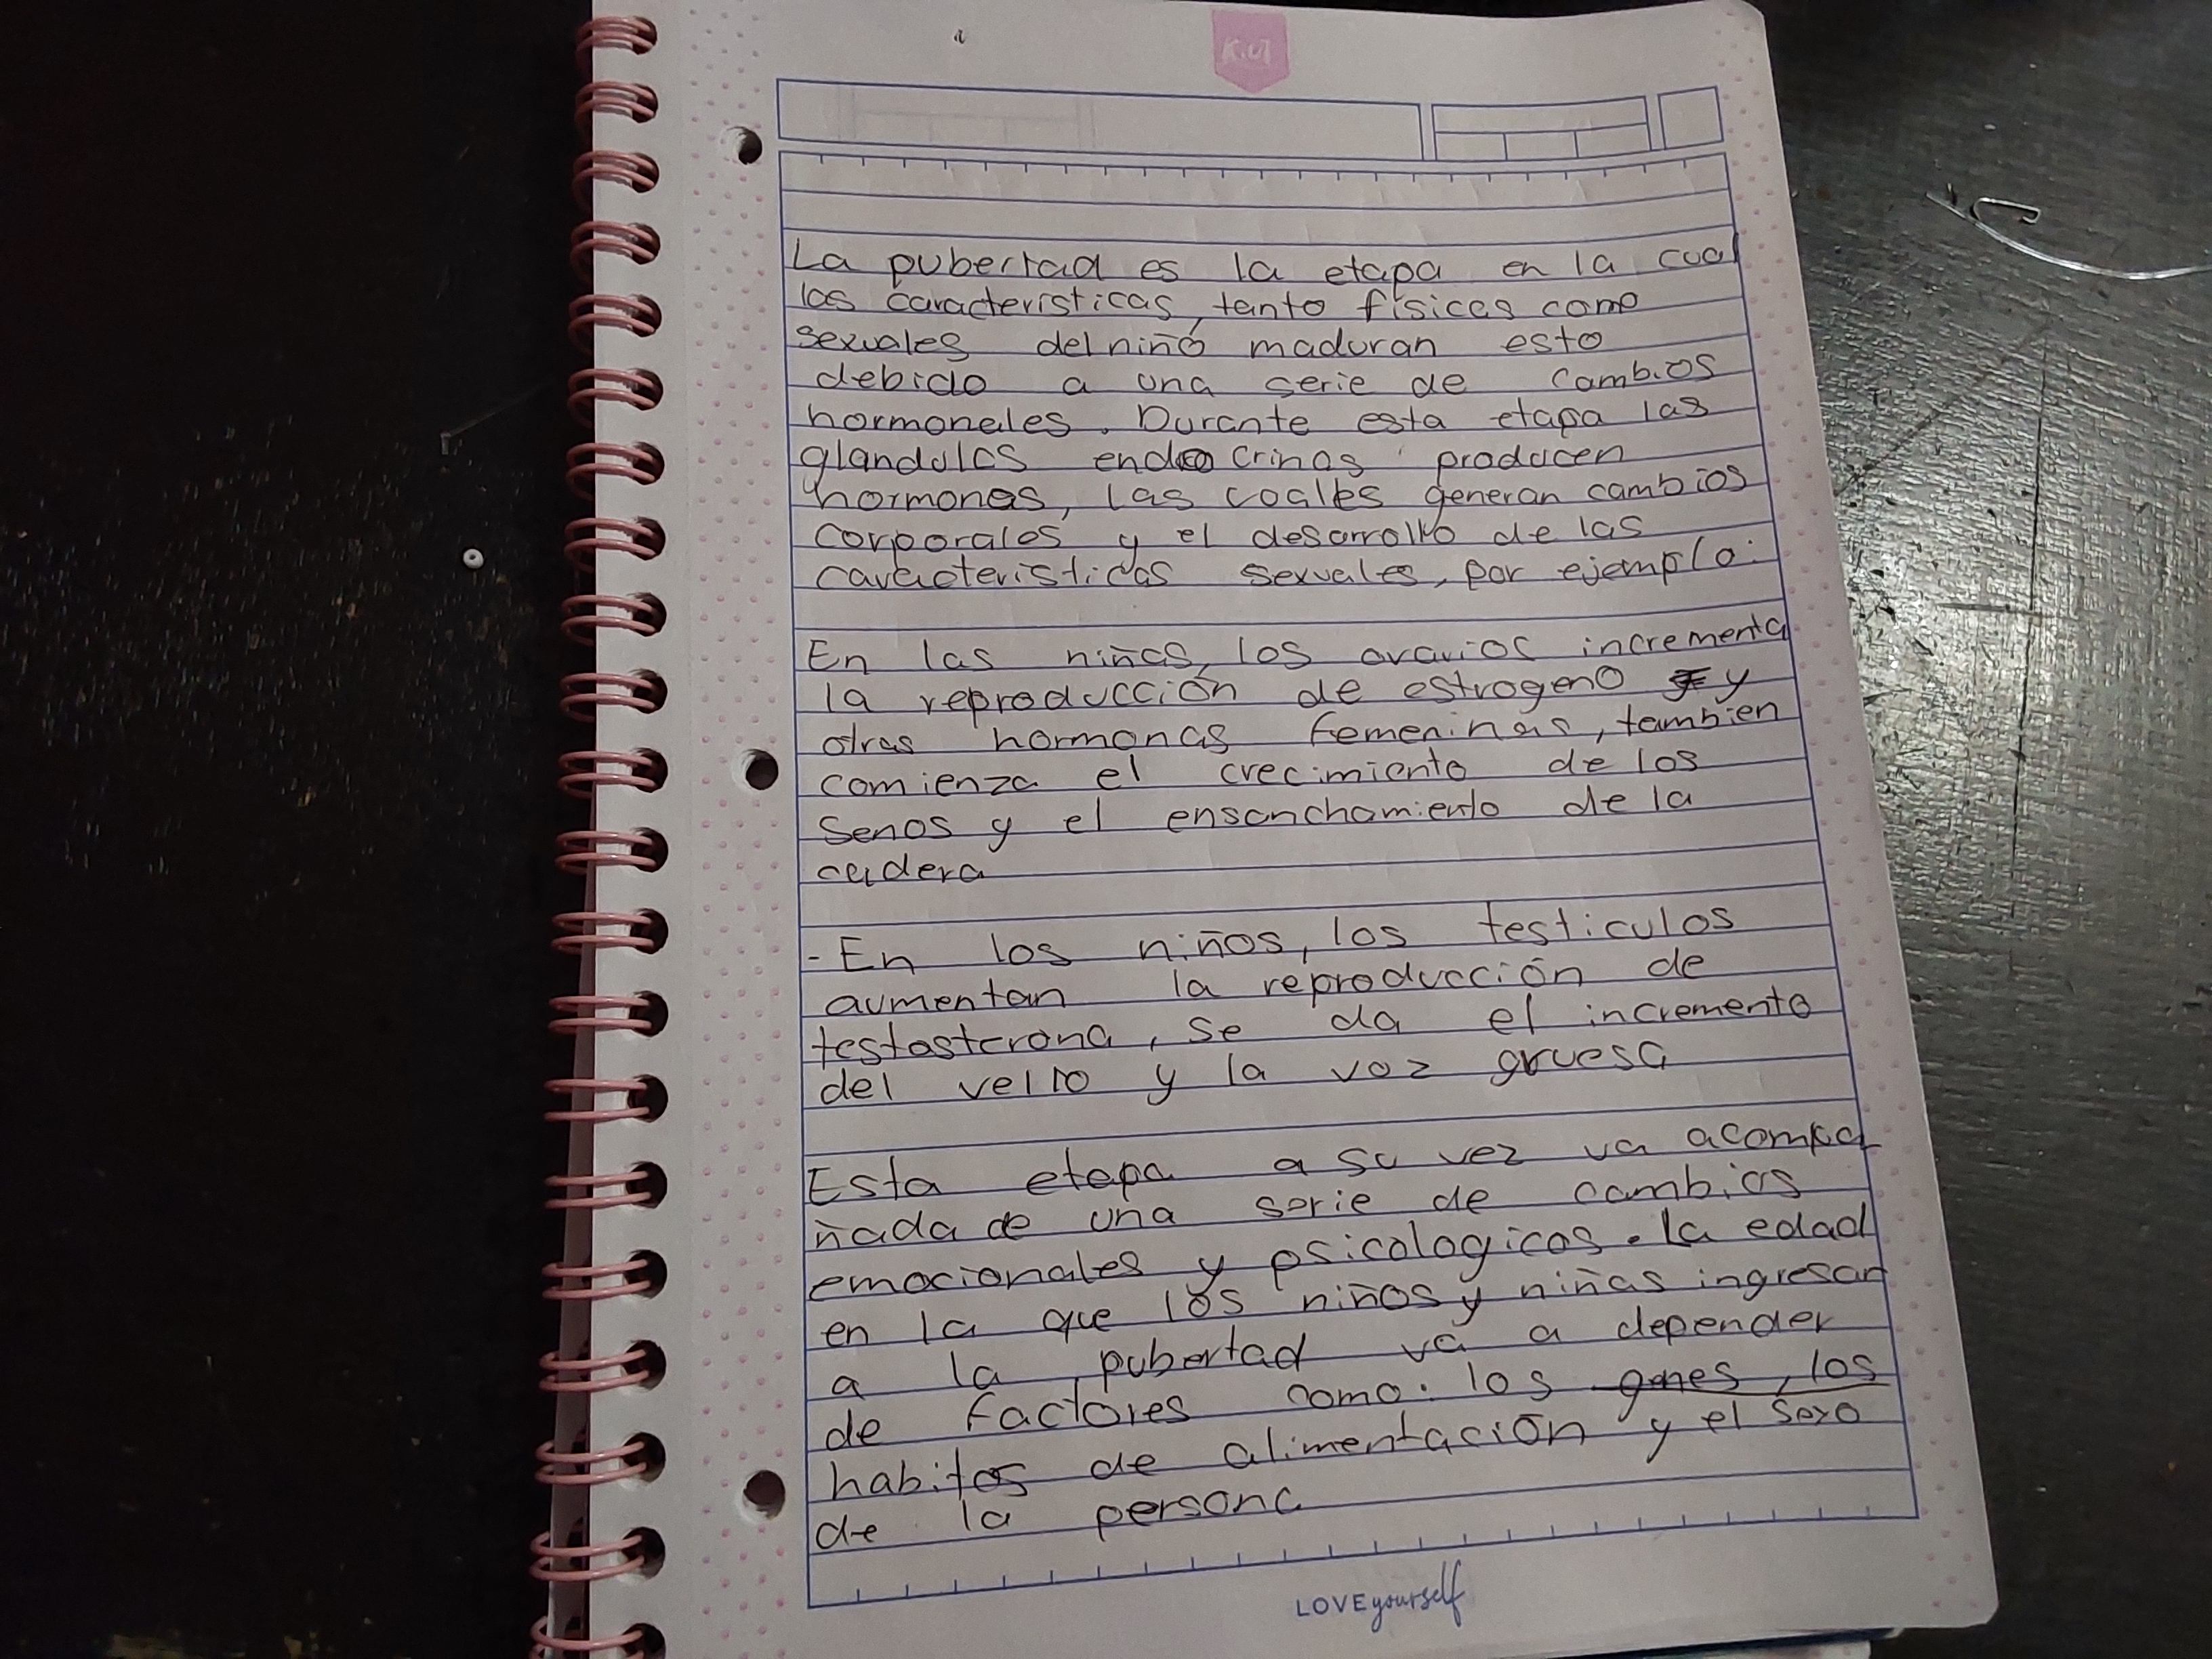 K.U
La pubertad es la etapa en la cual
las caracteristicas, tanto físicas como
sexuales del niño maduran esto
debido a una serie de cambios
hormonales. Durante esta etapa las
glandulas endocrinas producen
hormonas, las cuales generan cambios
corporales y el desarrollo de las
caracteristicas sexuales, por ejemplo:
En las niñas, los ovarios incrementa
la reproducción de estrogeno y
otras hormonas femeninas, tambien
comienza el crecimiento de los
senos y el ensanchamiento de la
cadera
- En los niños, los testiculos
aumentan la reproducción de
testosterona, se da el incremento
del vello y la voz gruesa
Esta etapa a su vez va acompa
ñada de una serie de cambios
emocionales y psicologicos. la edad
en la que los niños y niñas ingresan
a la pubertad va a depender
de factores como: los genes, los
habitos de alimentación y el sexo
de la persona
LOVE yourself